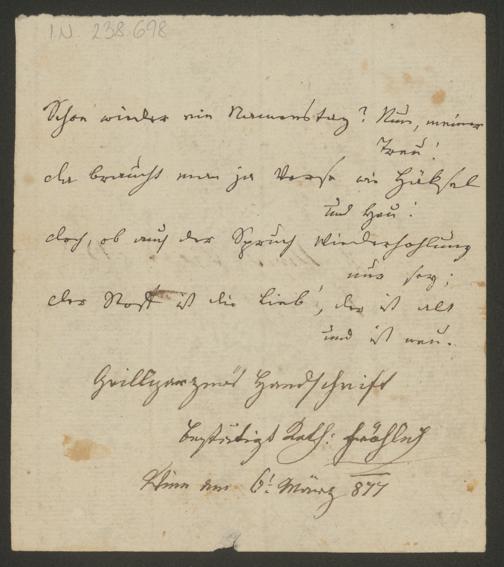 I.N. 238.698
Schon wieder ein Namenstag? Nun, meiner
Treu!
da braucht man ja Verse wie Häksel
und Heu!
doch, ob auch der Spruch Wiederhohlung
nur sey;
der Stoff ist die Lieb', die ist alt
und ist neu.
Grillparzers Handschrift
bestätigt Kath: Fröhlich
Wien am 6t März 877